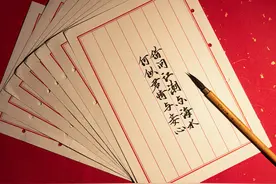 借问江潮与海水
何似君情与妾心